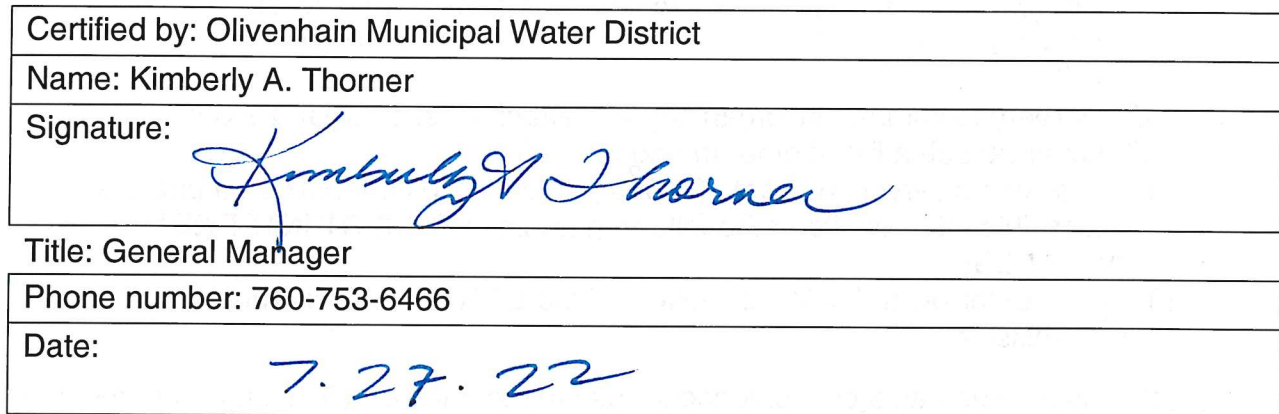 Certified by: Olivenhain Municipal Water District
Name: Kimberly A. Thorner
Signature: Kimberly A Thorner
Title: General Manager
Phone number: 760-753-6466
Date: 7.27.22